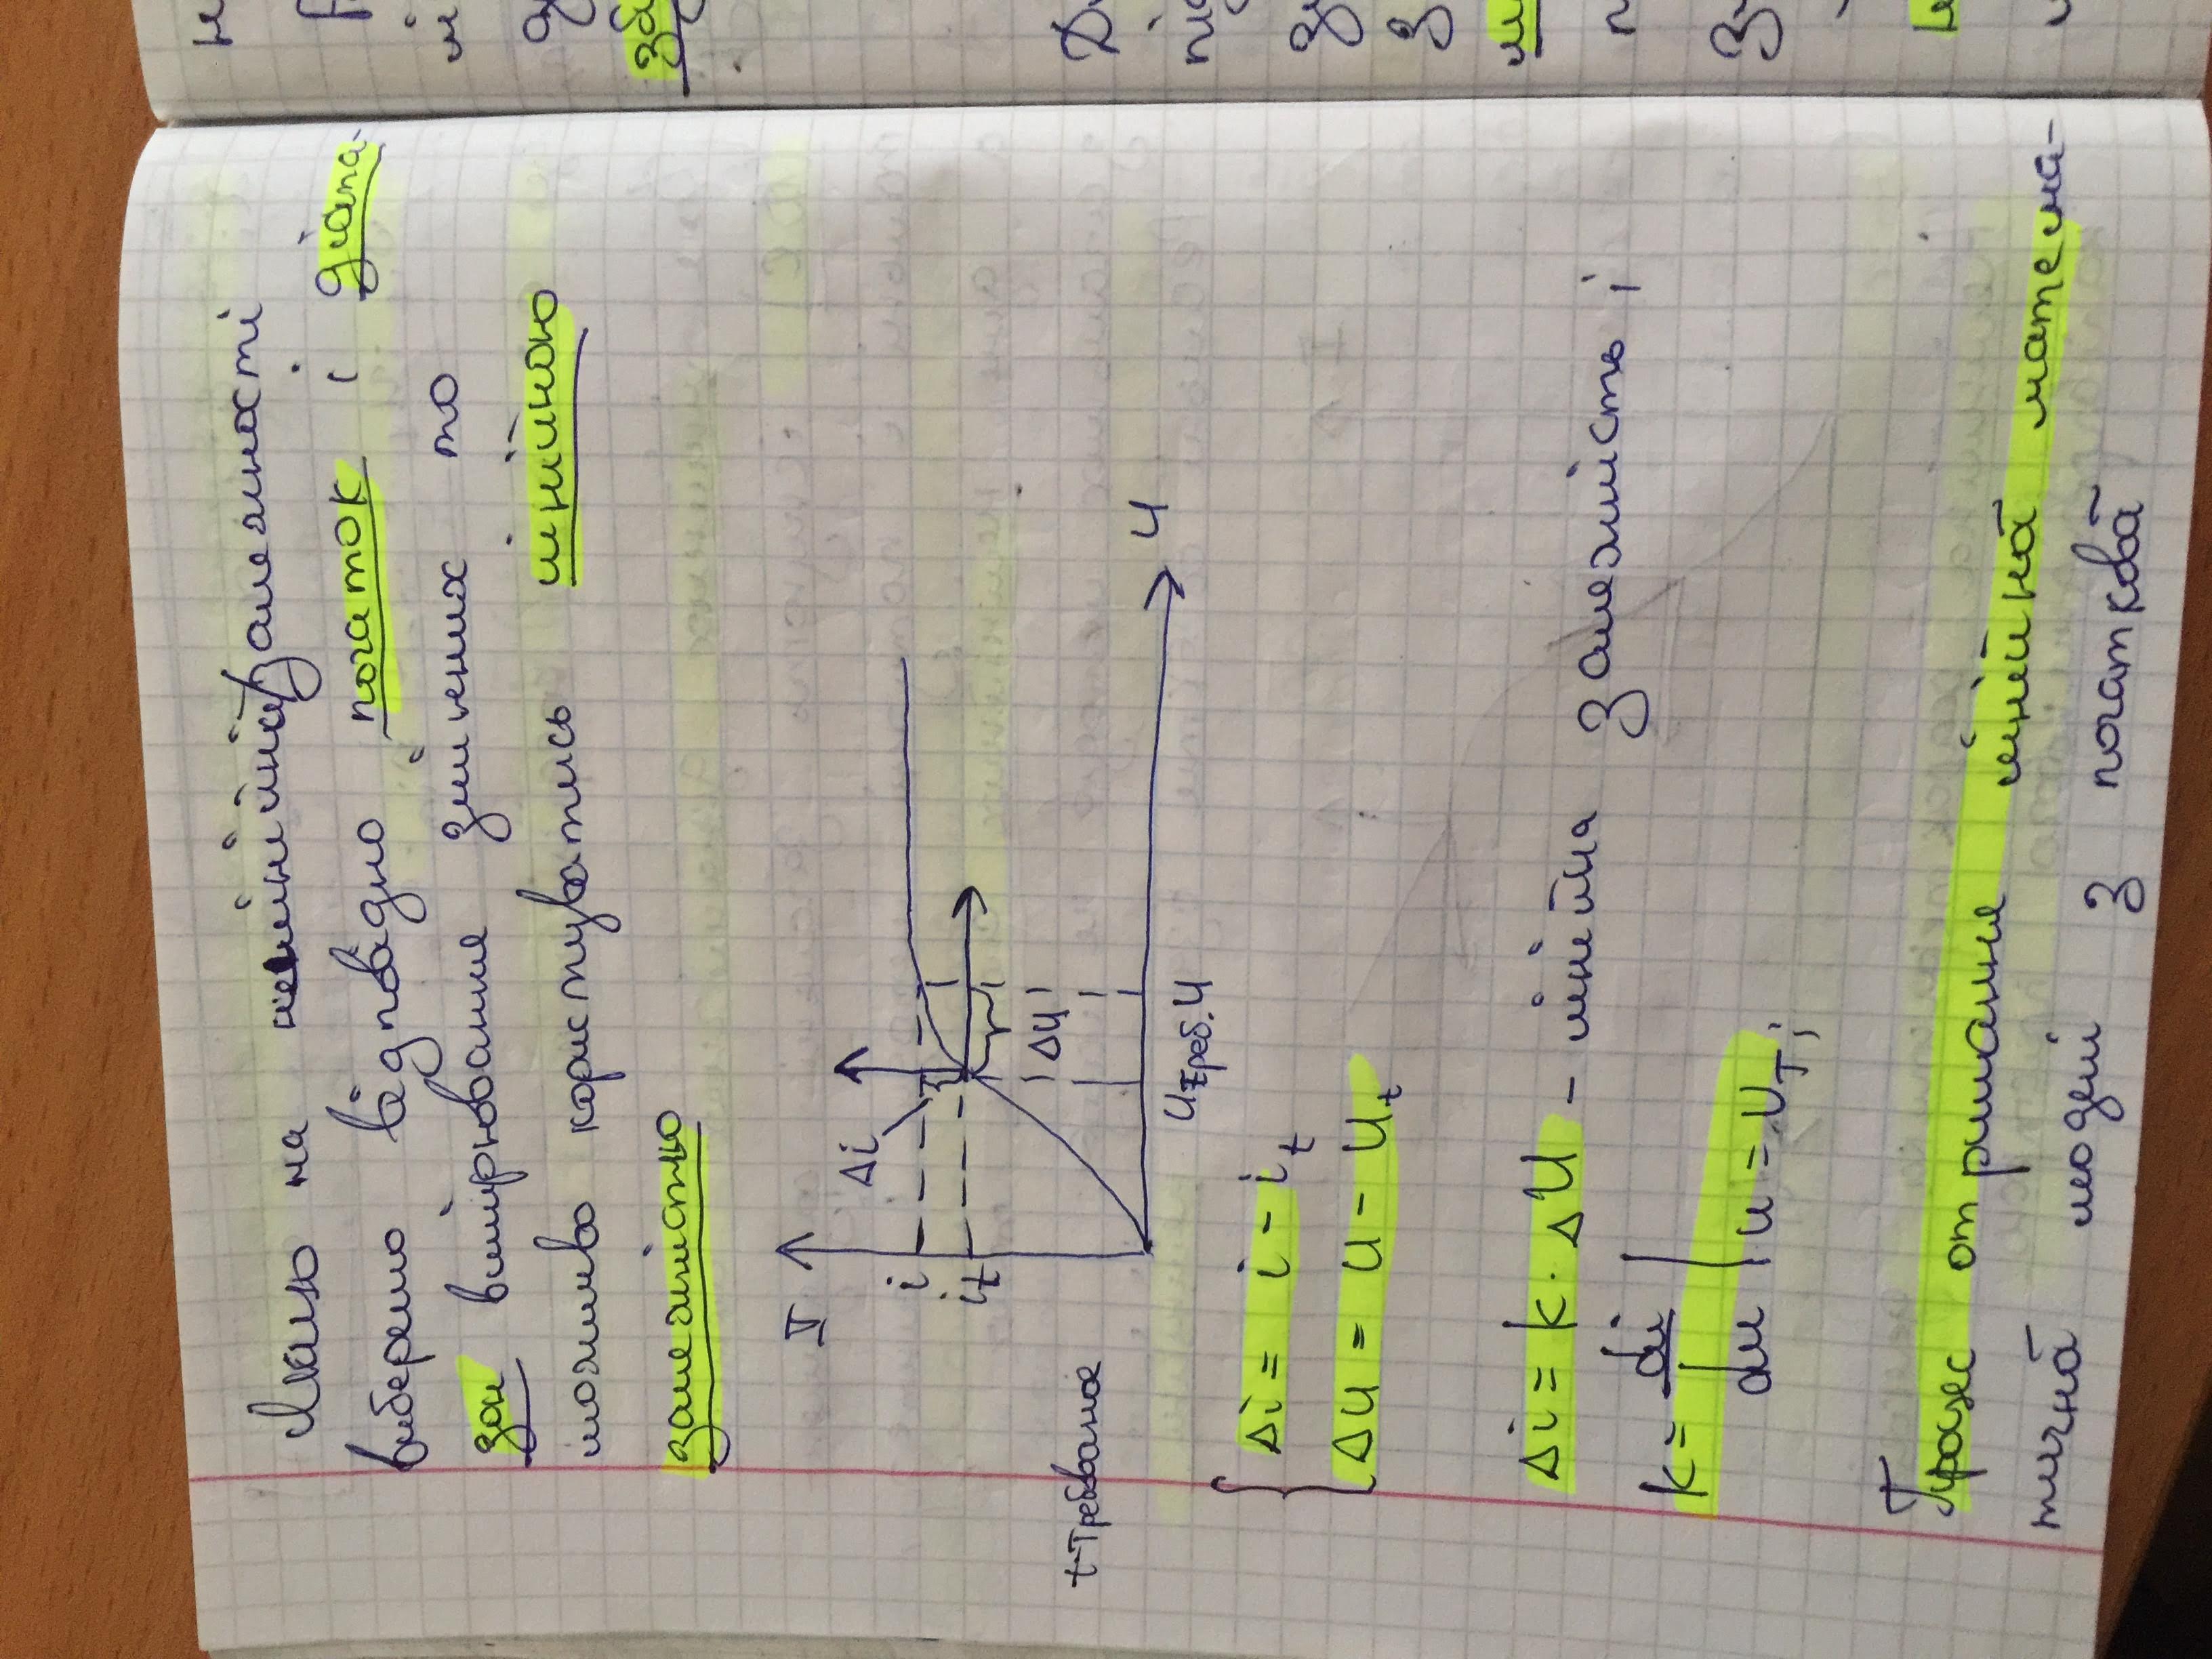 Якщо на нелінійній залежності
виберемо відповідно початок і діапа-
зон вимірювання змінних то
можливо користуватись лінійною
залежністю
I
Δi
i
it
ΔU
t-Требование
Uтреб. U
U
Δi = i - it
ΔU = U - Ut
Δi = k · ΔU - лінійна залежність;
k = di
du | u = UT;
Процес отримання лінійної матема-
тичної моделі з початкової